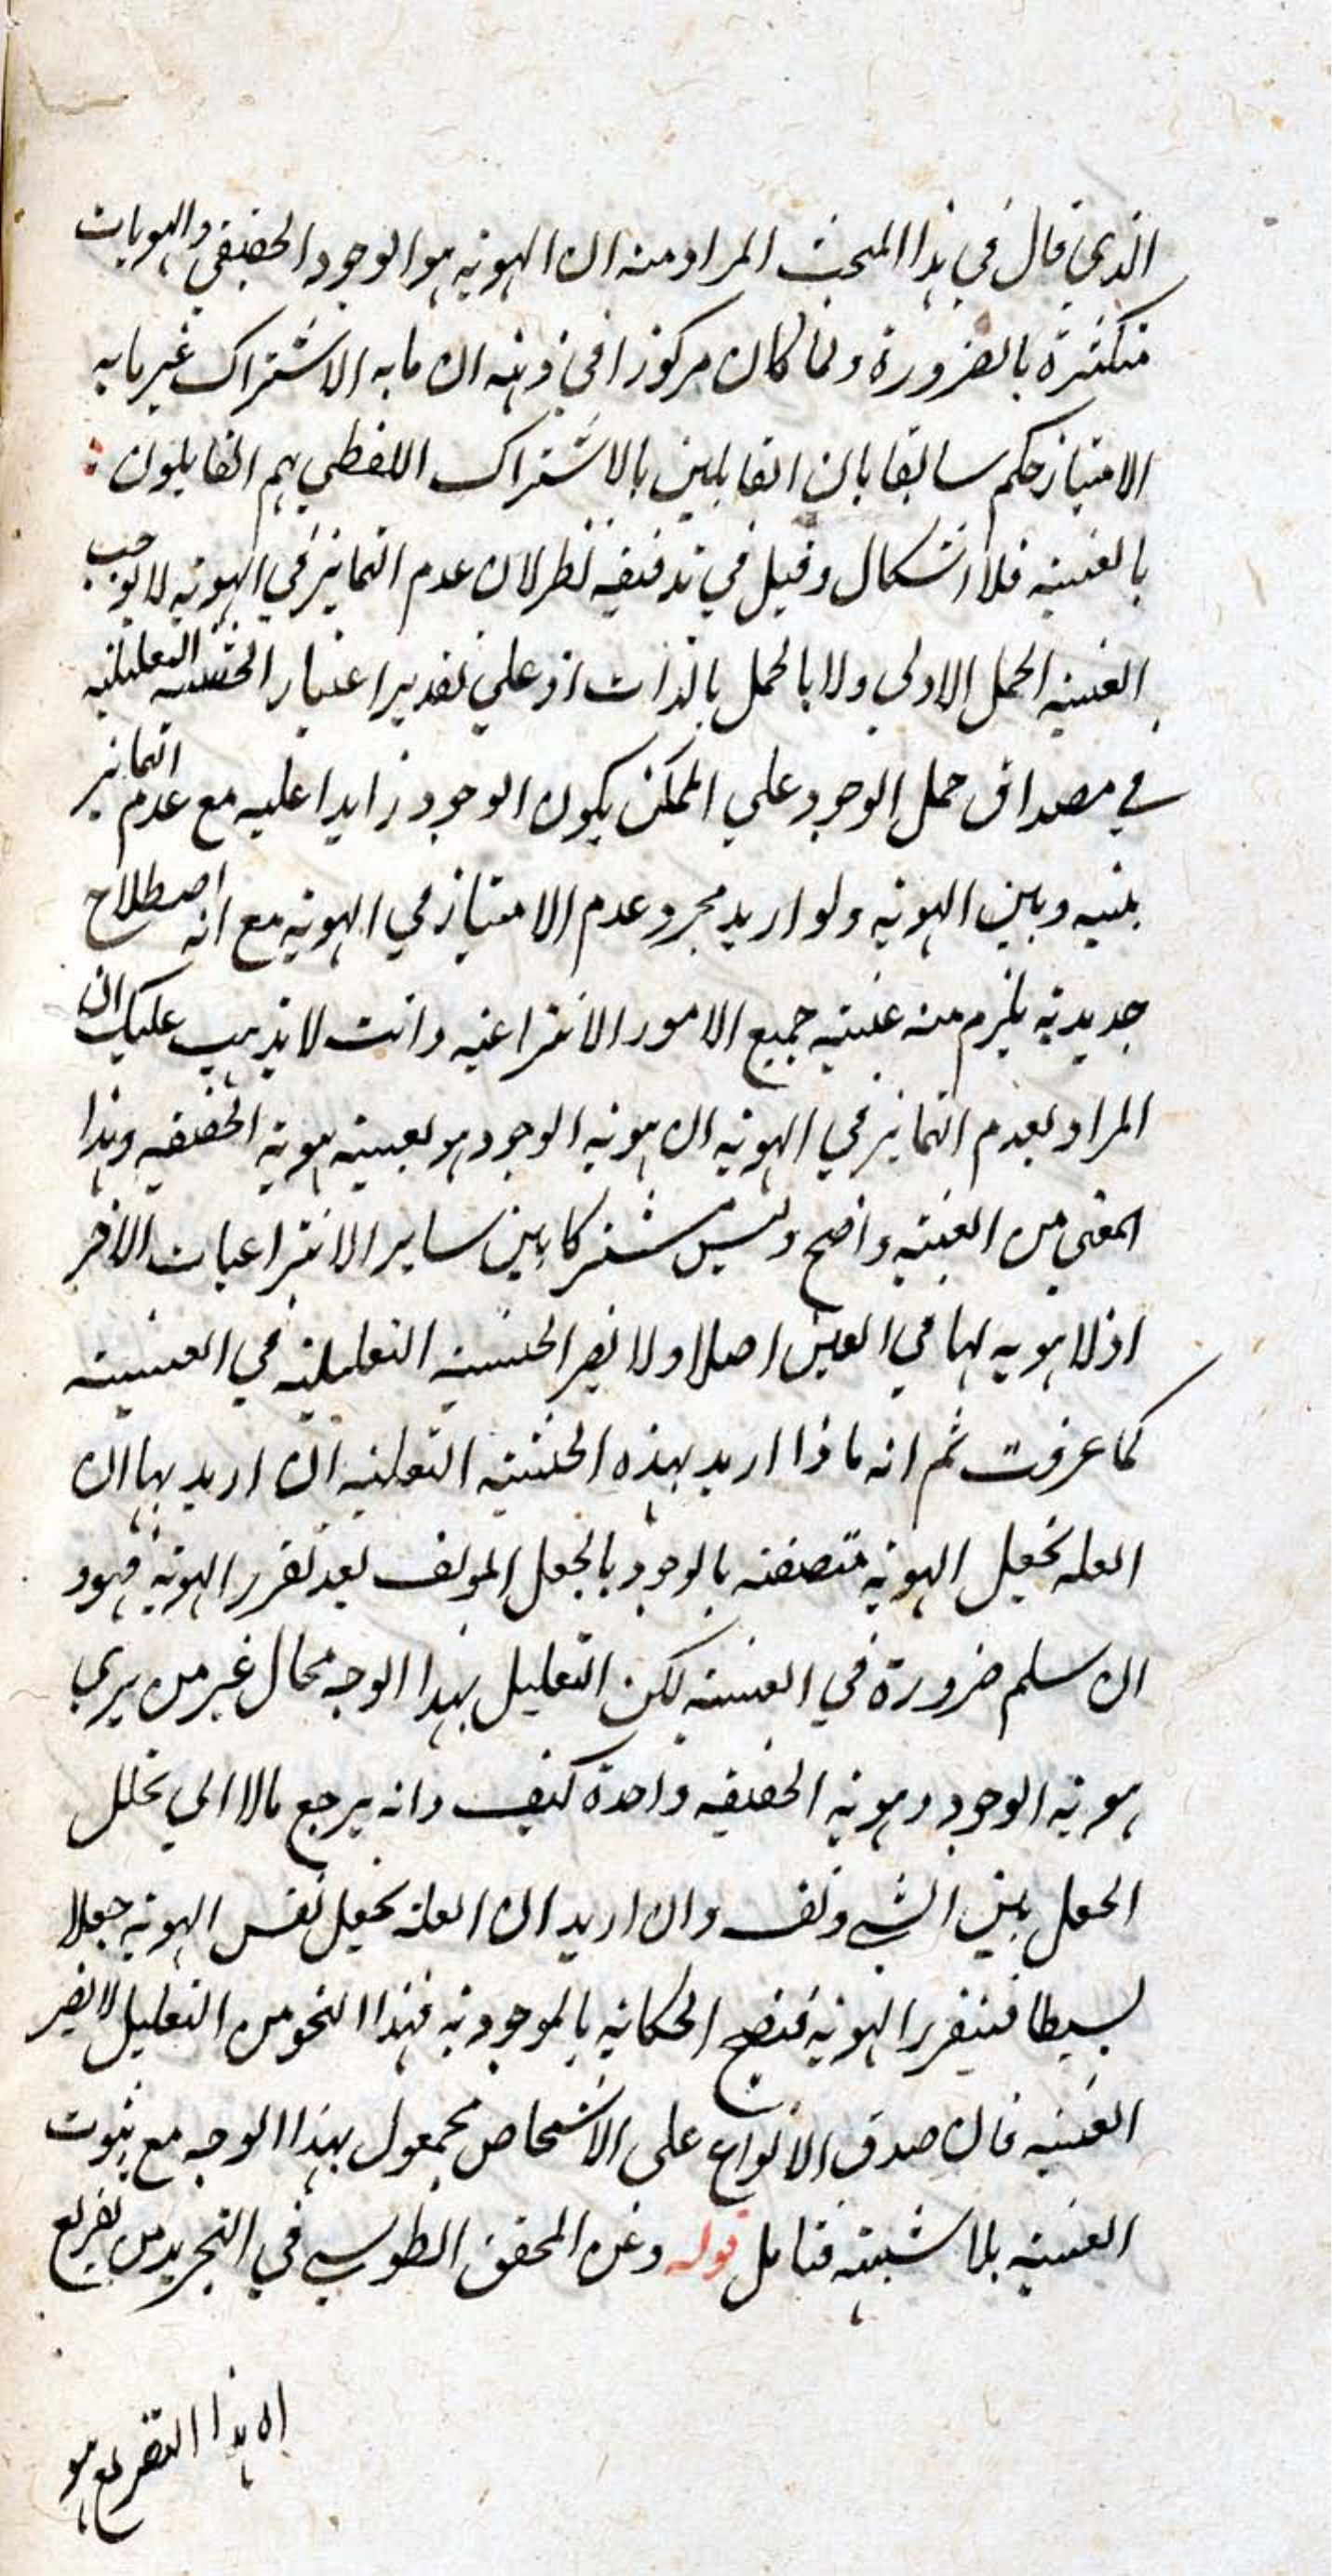 الذي قال في هذا المبحث المراد منه ان الهوية هو الوجود الحقيقي والهويات
متكثرة بالضرورة ولما كان مركوزا في ذهنه ان ما به الاشتراك غير ما به
الامتياز حكم سابقا بان القايلين بالاشتراك اللفظي هم القايلون
بالعينية فلا اشكال وقيل في تدقيقه نظر لان عدم التمايز في الهوية لا يوجب
العينية الحمل الاولي ولا بالحمل بالذات اذ علي تقدير اعتبار الحيثية التعليلية
في مصداق حمل الوجود علي الممكن يكون الوجود زايدا عليه مع عدم التمايز
بينه وبين الهوية ولو اريد مجرد عدم الامتياز في الهوية مع انه اصطلاح
جديد به يلزم منه عينية جميع الامور الانتزاعية وانت لا يذهب عليك ان
المراد بعدم التمايز في الهوية ان هوية الوجود هو بعينه هوية الحقيقة وهذا
المعني من العينية واضح وليس مشتركا بين ساير الانتزاعيات الاخر
اذ لا هوية لها في العين اصلا ولا يضر الحيثية التعليلية في العينية
كما عرفت ثم انه ماذا اريد بهذه الحيثية التعليلية ان اريد بها ان
العلة تجعل الهوية متصفة بالوجود بالجعل المولف بعد تقرر الهوية فهو
ان سلم ضرورة في العينية لكن التعليل بهذا الوجه محال غير من يري
هوية الوجود وهوية الحقيقة واحدة كيف وانه يرجع مالا الي تخلل
الجعل بين الشي ونفسه وان اريد ان العلة تجعل نفس الهوية جعلا
بسيطا فيتقرر الهوية فتصح الحكاية بالموجودية فهذا النحو من التعليل لا يضر
العينية فان صدق الانواع علي الاشخاص مجعول بهذا الوجه مع ثبوت
العينية بلا شبهة فتامل قوله وعن المحقق الطوسي في التجريد من تفريع
اه هذا التفريع هو